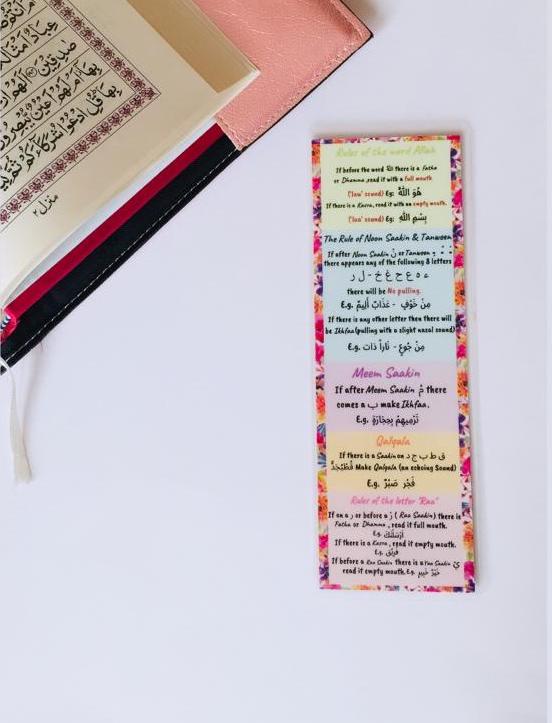 عباد امثالكم
صدقين
بها ام لهم اعين يبصرون
بها قل ادعوا شركاءكم ثم كيدون
منزل ٢
Rules of the word Allah
If before the word الله there is a Fatha
or Dhamma, read it with a full mouth
('law' sound) Eg: هُوَ اللّٰهُ
If there is a Kasra, read it with an empty mouth.
('laa' sound) Eg: بِسْمِ اللّٰهِ
The Rule of Noon Saakin & Tanween
If after Noon Saakin نْ or Tanween
there appears any of the following 8 letters
ء ه ع ح غ خ - ل ر
there will be No pulling.
E.g. مِنْ خَوْفٍ - عَذَابٌ أَلِيمٌ
If there is any other letter then there will
be Ikhfaa(pulling with a slight nasal sound)
E.g. مِنْ جُوعٍ - نَاراً ذَاتَ
Meem Saakin
If after Meem Saakin مْ there
comes a ب make Ikhfaa.
E.g. تَرْمِيهِمْ بِحِجَارَةٍ
Qalqala
If there is a Saakin on ق ط ب ج د
Make Qalqala (an echoing Sound)
E.g. فَجْر صَبْرٌ
Rules of the letter "Raa"
If on a ر or before a رْ ( Raa Saakin) there is
Fatha or Dhamma, read it full mouth.
E.g. أَرْسَلْنَكَ
If there is a Kasra, read it empty mouth.
E.g. فِرِيْق
If before a Raa Saakin there is a Yaa Saakin يْ
read it empty mouth. E.g. خَيْرٌ خَبِير